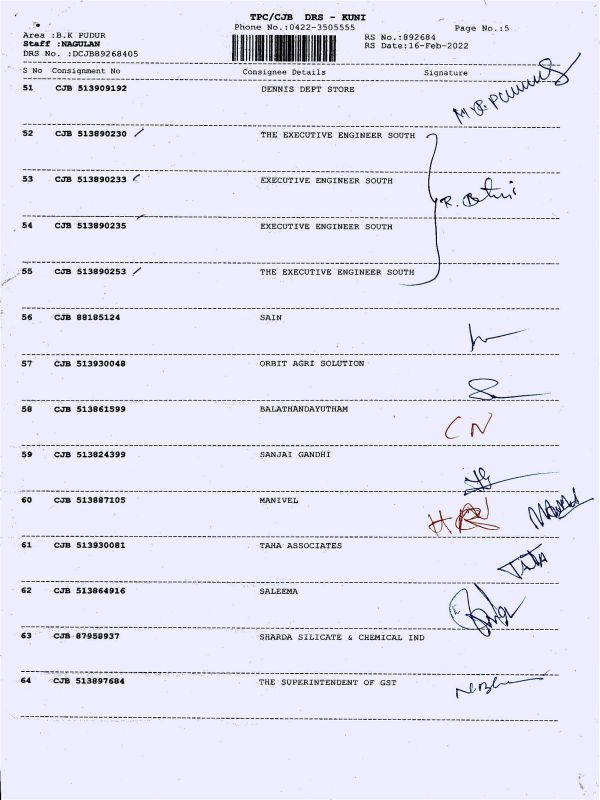 TPC/CJB DRS - KUNI
Phone No.:0422-3505555 Page No.:5
Area :B.K PUDUR RS No.:892684
Staff :NAGULAN RS Date:16-Feb-2022
DRS No. :DCJB89268405
S No Consignment No Consignee Details Signature
51 CJB 513909192 DENNIS DEPT STORE
52 CJB 513890230 THE EXECUTIVE ENGINEER SOUTH
53 CJB 513890233 EXECUTIVE ENGINEER SOUTH
54 CJB 513890235 EXECUTIVE ENGINEER SOUTH
55 CJB 513890253 THE EXECUTIVE ENGINEER SOUTH
56 CJB 88185124 SAIN
57 CJB 513930048 ORBIT AGRI SOLUTION
58 CJB 513861599 BALATHANDAYUTHAM
CN
59 CJB 513824399 SANJAI GANDHI
60 CJB 513887105 MANIVEL
61 CJB 513930081 TAHA ASSOCIATES
62 CJB 513864916 SALEEMA
63 CJB 87958937 SHARDA SILICATE & CHEMICAL IND
64 CJB 513897684 THE SUPERINTENDENT OF GST